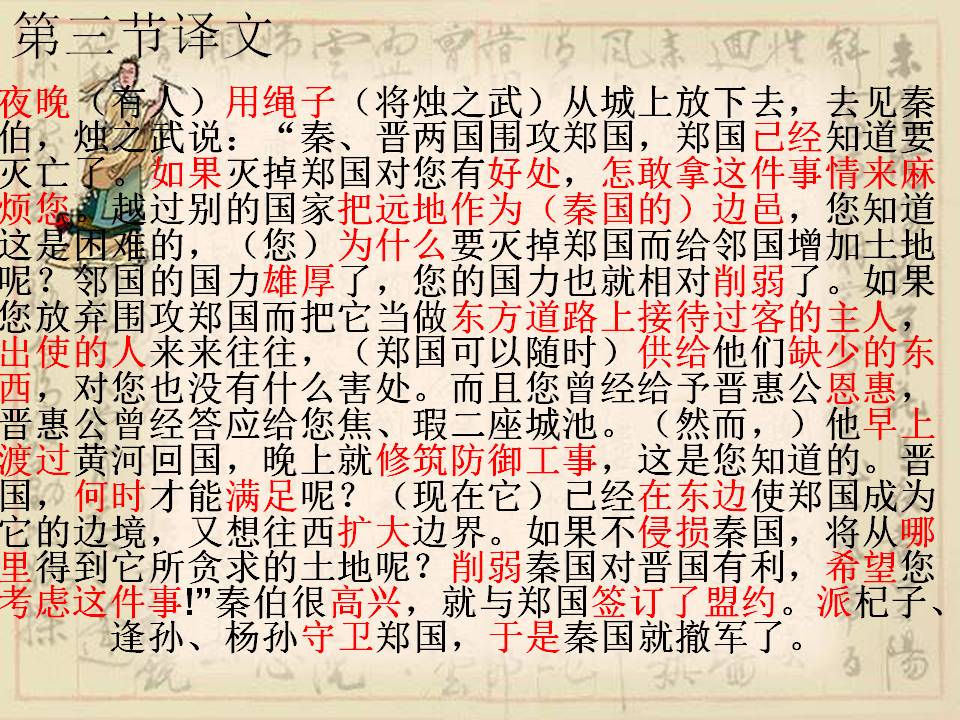 第三节译文
夜晚（有人）用绳子（将烛之武）从城上放下去，去见秦
伯，烛之武说：“秦、晋两国围攻郑国，郑国已经知道要
灭亡了。如果灭掉郑国对您有好处，怎敢拿这件事情来麻
烦您。越过别的国家把远地作为（秦国的）边邑，您知道
这是困难的，（您）为什么要灭掉郑国而给邻国增加土地
呢？邻国的国力雄厚了，您的国力也就相对削弱了。如果
您放弃围攻郑国而把它当做东方道路上接待过客的主人，
出使的人来来往往，（郑国可以随时）供给他们缺少的东
西，对您也没有什么害处。而且您曾经给予晋惠公恩惠，
晋惠公曾经答应给您焦、瑕二座城池。（然而，）他早上
渡过黄河回国，晚上就修筑防御工事，这是您知道的。晋
国，何时才能满足呢？（现在它）已经在东边使郑国成为
它的边境，又想往西扩大边界。如果不侵损秦国，将从哪
里得到它所贪求的土地呢？削弱秦国对晋国有利，希望您
考虑这件事!”秦伯很高兴，就与郑国签订了盟约。派杞子、
逢孙、杨孙守卫郑国，于是秦国就撤军了。